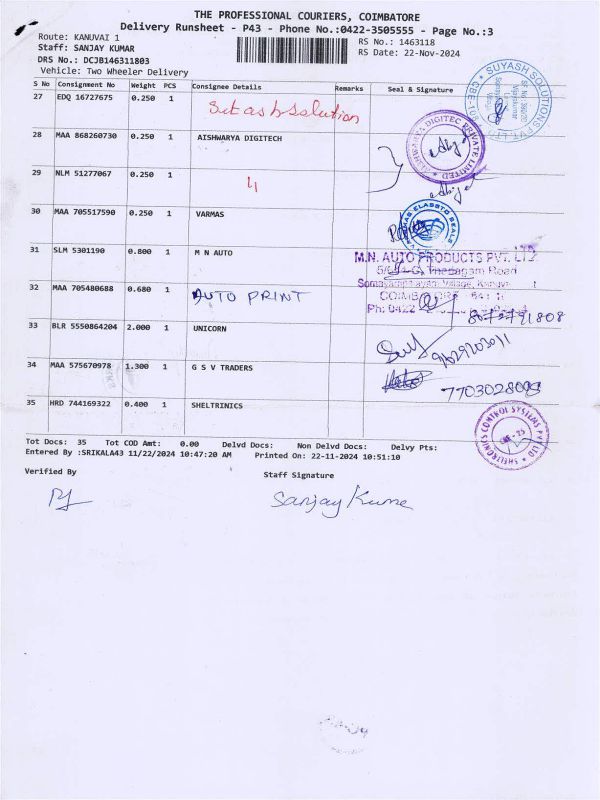 THE PROFESSIONAL COURIERS, COIMBATORE
Delivery Runsheet - P43 - Phone No.:0422-3505555 - Page No.:3
Route: KANUVAI 1
RS No.: 1463118
Staff: SANJAY KUMAR
RS Date: 22-Nov-2024
DRS No.: DCJB146311803
Vehicle: Two Wheeler Delivery
S No Consignment No Weight PCS Consignee Details Remarks Seal & Signature
27 EDQ 16727675 0.250 1
28 MAA 868260730 0.250 1 AISHWARYA DIGITECH
AISHWARYA DIGITEC PRIVATE LIMITED
29 NLM 51277067 0.250 1 "
30 MAA 705517590 0.250 1 VARMAS
31 SLM 5301190 0.800 1 M N AUTO
M.N. AUTO PRODUCTS PVT. LTD
32 MAA 705480688 0.680 1 AUTO PRINT
33 BLR 5550864204 2.000 1 UNICORN
34 MAA 575670978 1.300 1 G S V TRADERS
35 HRD 744169322 0.400 1 SHELTRINICS
SHELTRONICS CONTROL SYSTEMS PVT LTD
Tot Docs: 35 Tot COD Amt: 0.00 Delvd Docs: Non Delvd Docs: Delvy Pts:
Entered By :SRIKALA43 11/22/2024 10:47:20 AM Printed On: 22-11-2024 10:51:10
Verified By
Staff Signature
Sanjay Kume